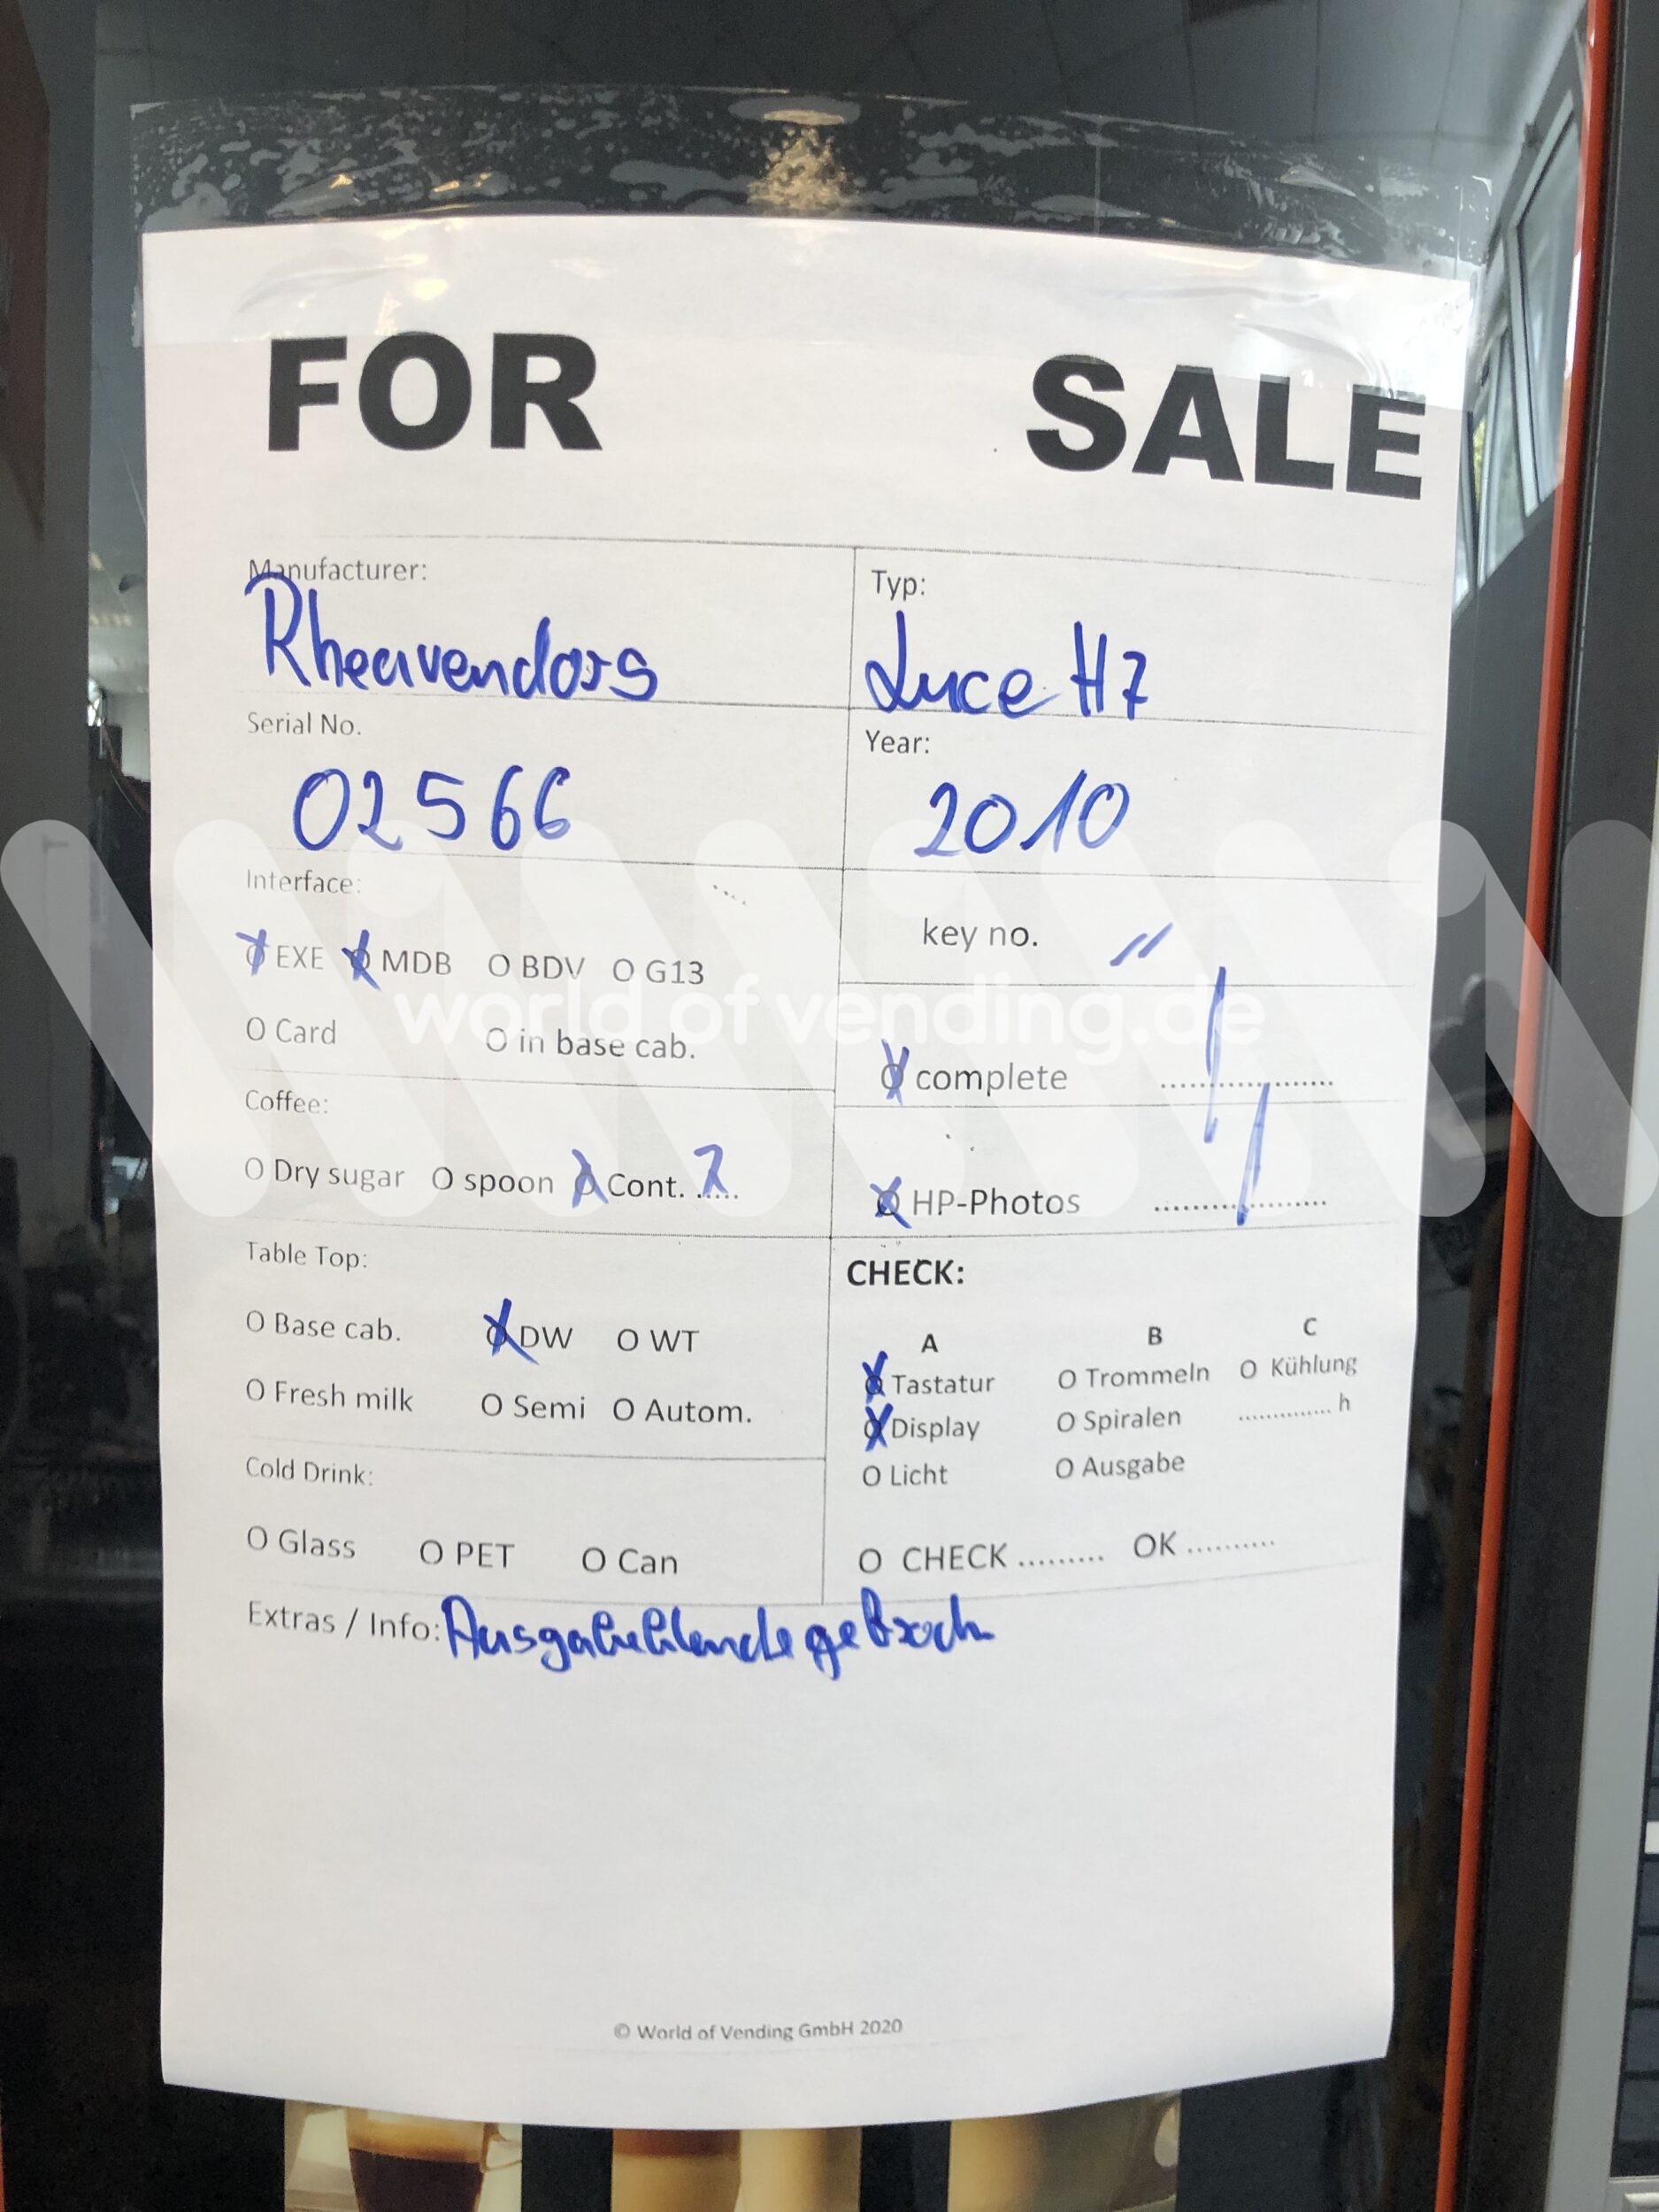 FOR SALE
Manufacturer: Typ:
Rheavendors Luce H7
Serial No. Year:
02566 2010
Interface: key no. "
X EXE X MDB O BDV O G13
O Card O in base cab.
X complete ....................
Coffee:
O Dry sugar O spoon X Cont. 7
X HP-Photos ....................
Table Top: CHECK:
O Base cab. X DW O WT
A B C
X Tastatur O Trommeln O Kühlung
O Fresh milk O Semi O Autom.
X Display O Spiralen .............. h
Cold Drink: O Licht O Ausgabe
O Glass O PET O Can
O CHECK ......... OK ..........
Extras / Info: Ausgabeblende gebroch
© World of Vending GmbH 2020
world of vending.de